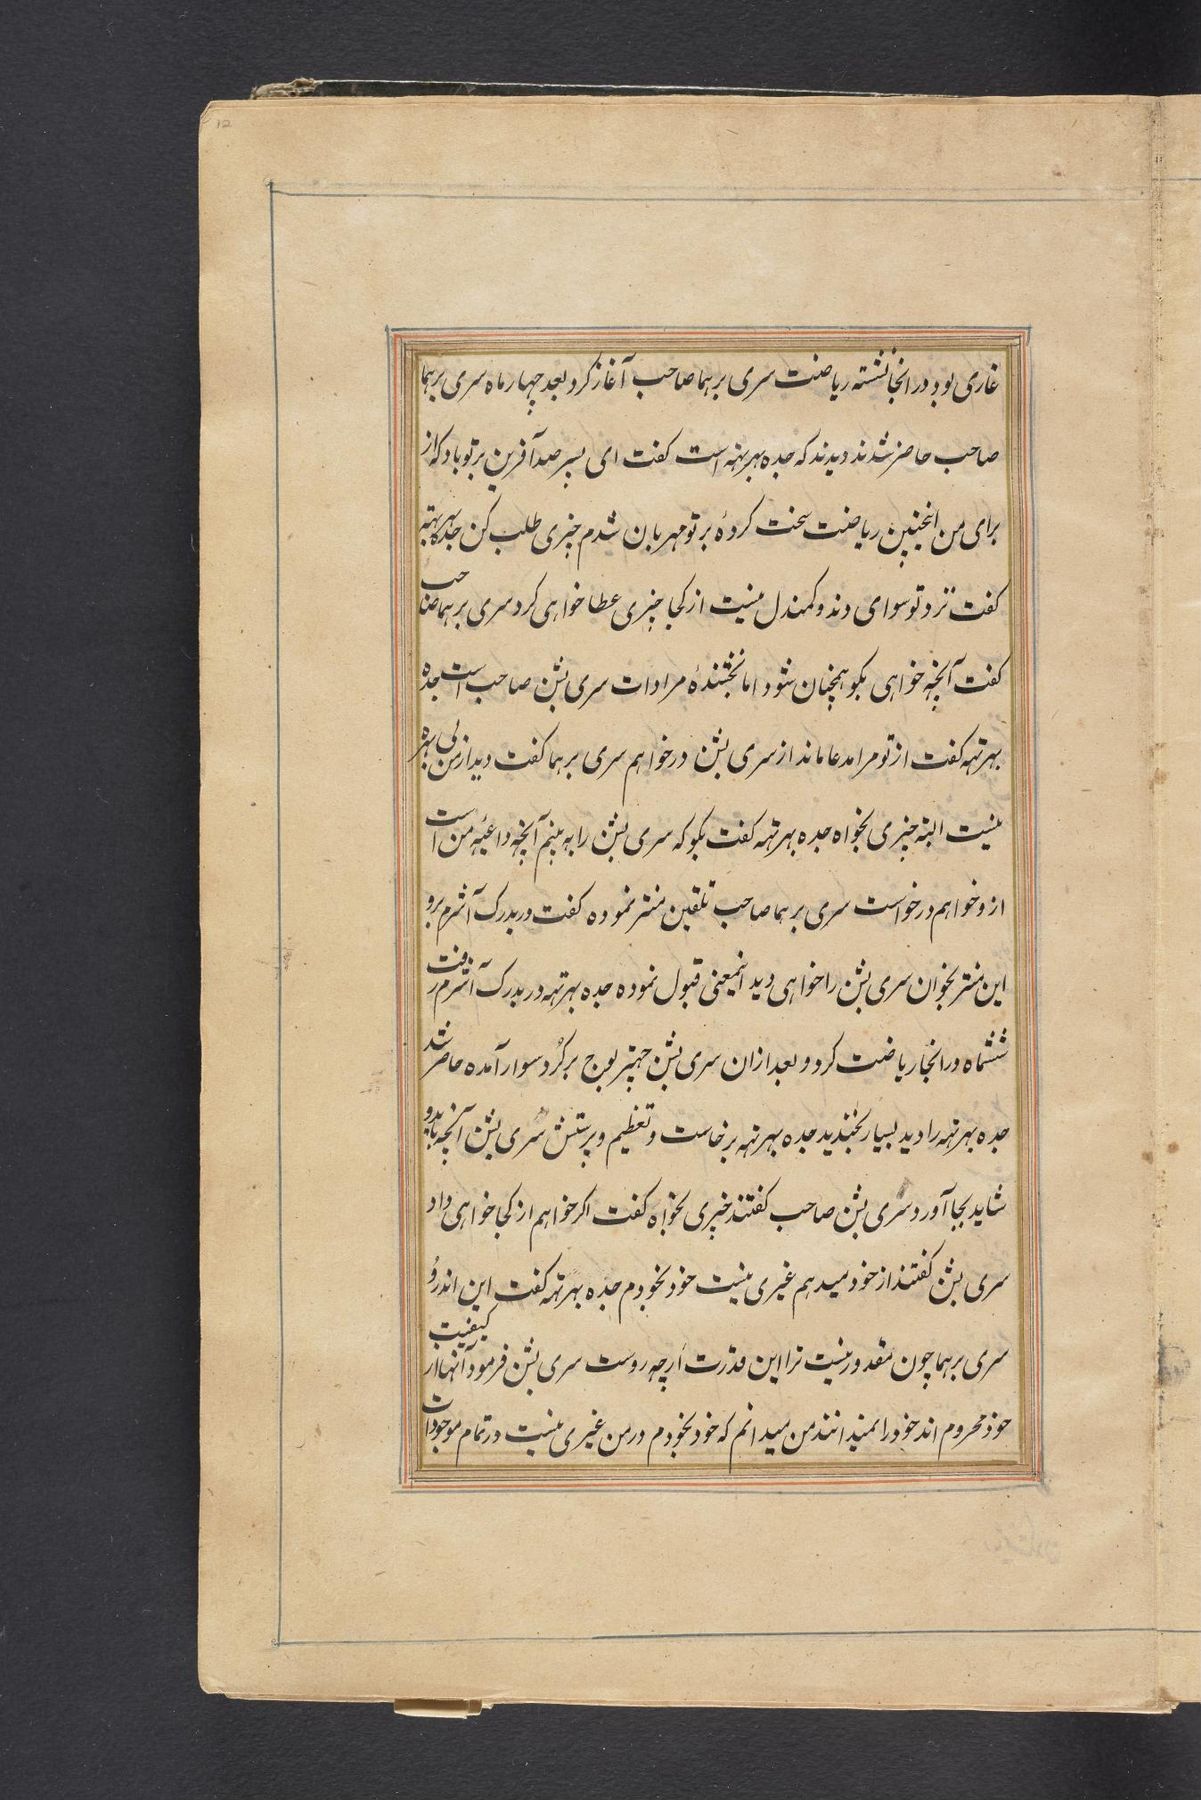 غاری بود در انجا نشسته ریاضت سری برهما صاحب آغاز کرد بعد چهار ماه سری برهما
صاحب حاضر شدند دیدند که جده بهرتهه است کفت ای پسر صد آفرین بر تو باد که از
برای من اینچنین ریاضت سخت کردهٔ بر تو مهربان شدم چیزی طلب کن جده بهرتهه
کفت نزد تو سوای دند و کمندل نیست از کجا چیزی عطا خواهی کرد سری برهما صاحب
کفت آنچه خواهی بکو همچنان شود اما بخشندهٔ مرادات سری بشن صاحب است جده
بهرتهه کفت از تو مرا مدعا ماند از سری بشن درخواهم سری برهما کفت دیدار من بی بهره
نیست البته چیزی بخواه جده بهرتهه کفت بکو که سری بشن را به بینم آنچه داعیهٔ من است
ازو خواهم درخواست سری برهما صاحب تلقین منتر نموده کفت در بدرک آشرم برو
این منتر بخوان سری بشن را خواهی دید اینمعنی قبول نموده جده بهرتهه در بدرک آشرم رفت
ششماه در انجا ریاضت کرد و بعد ازان سری بشن چتر بهوج بر کرد سوار آمده حاضر شد
جده بهرتهه را دید بسیار بخندید جده بهرتهه برخاست و تعظیم و پرستش سری بشن آنچه باید و
شاید بجا آورد سری بشن صاحب کفتند چیزی بخواه کفت اکر خواهم از کجا خواهی داد
سری بشن کفتند از خود میدهم غیری نیست خود بخودم جده بهرتهه کفت این اندر و
سری برهما چون مقدور نیست ترا این قدرت از چه روست سری بشن فرمود آنها از کیفیت
خود محروم اند خود را نمیدانند من میدانم که خود بخودم در من غیری نیست در تمام موجودات